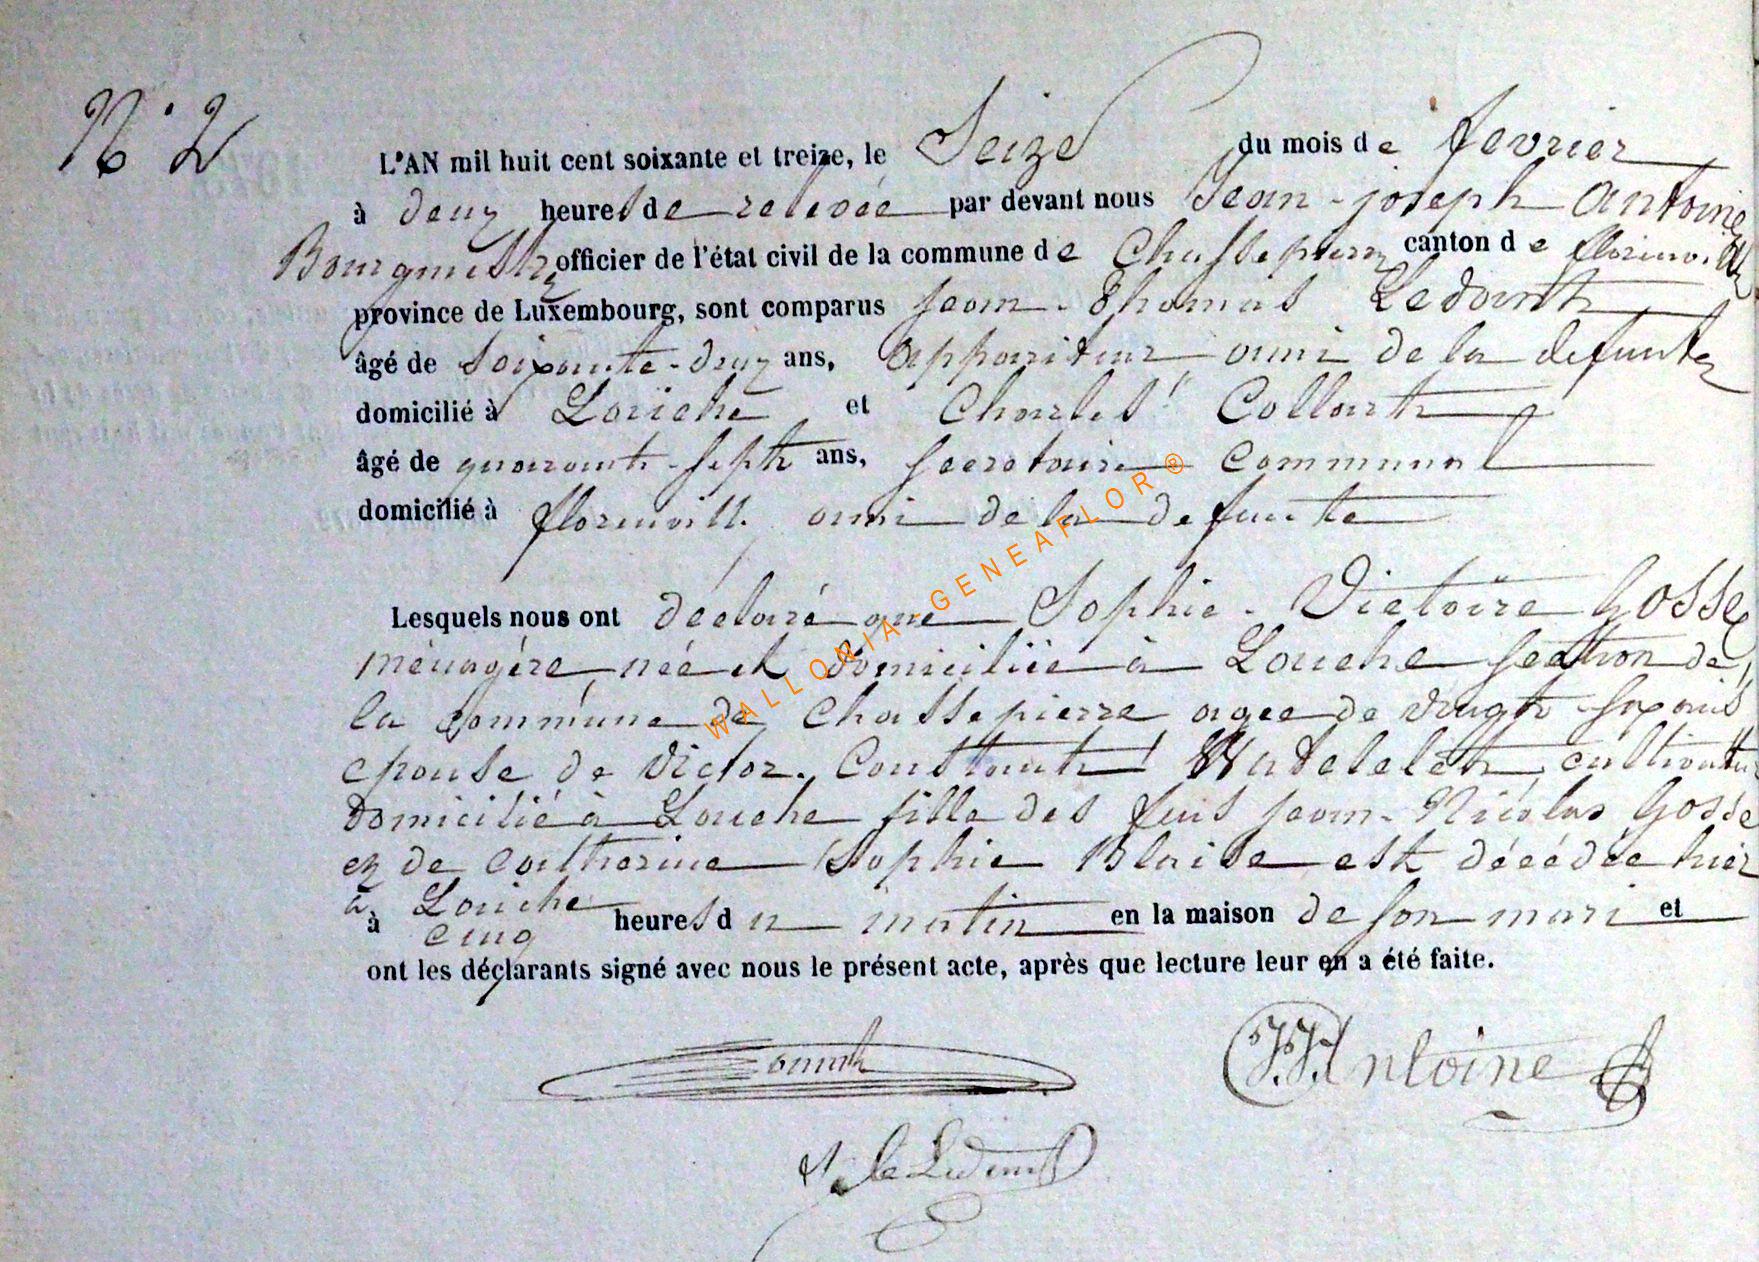 N° 2
L'AN mil huit cent soixante et treize, le Seize du mois de fevrier
à deux heures de relevée par devant nous Jean-joseph Antoine
Bourgmestre officier de l'état civil de la commune de Chassepierre canton de florenville
province de Luxembourg, sont comparus jean-thomas Ledant
âgé de soixante-deux ans, appariteur ami de la defunte
domicilié à Laiche et Charles Collart
âgé de quarante-sept ans, secretaire communal
domicilié à florenville ami de la defunte
Lesquels nous ont déclaré que Sophie-Victoire Gosse
ménagère née et domiciliée à Laiche section de
la commune de Chassepierre agee de vingt-six ans
epouse de Victor-Constant Watelet cultivateur
domicilié à Laiche fille des fuis jean-Nicolas Gosse
et de Catherine Sophie Blaise est décédée hier
à Laiche
à cinq heures du matin en la maison de son mari et
ont les déclarants signé avec nous le présent acte, après que lecture leur en a été faite.
J.J. Antoine
WALLONIA GENEAFLOR ®